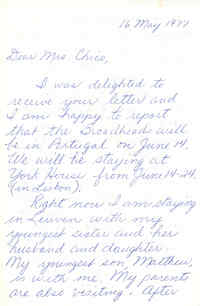 16 May 1977
Dear Mrs Chris,
I was delighted to
receive your letter and
I am happy to report
that the Broadheads will
be in Portugal on June 14.
We will be staying at
York House from June 14-24.
(in Lisbon).
Right now I am staying
in Leuven with my
youngest sister and her
husband and daughter.
My youngest son, Matthew,
is with me. My parents
are also visiting. After